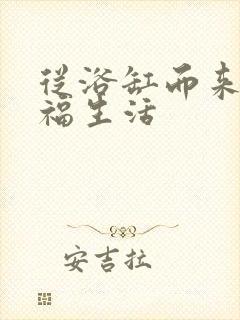 从浴缸而来
福生活
安吉拉